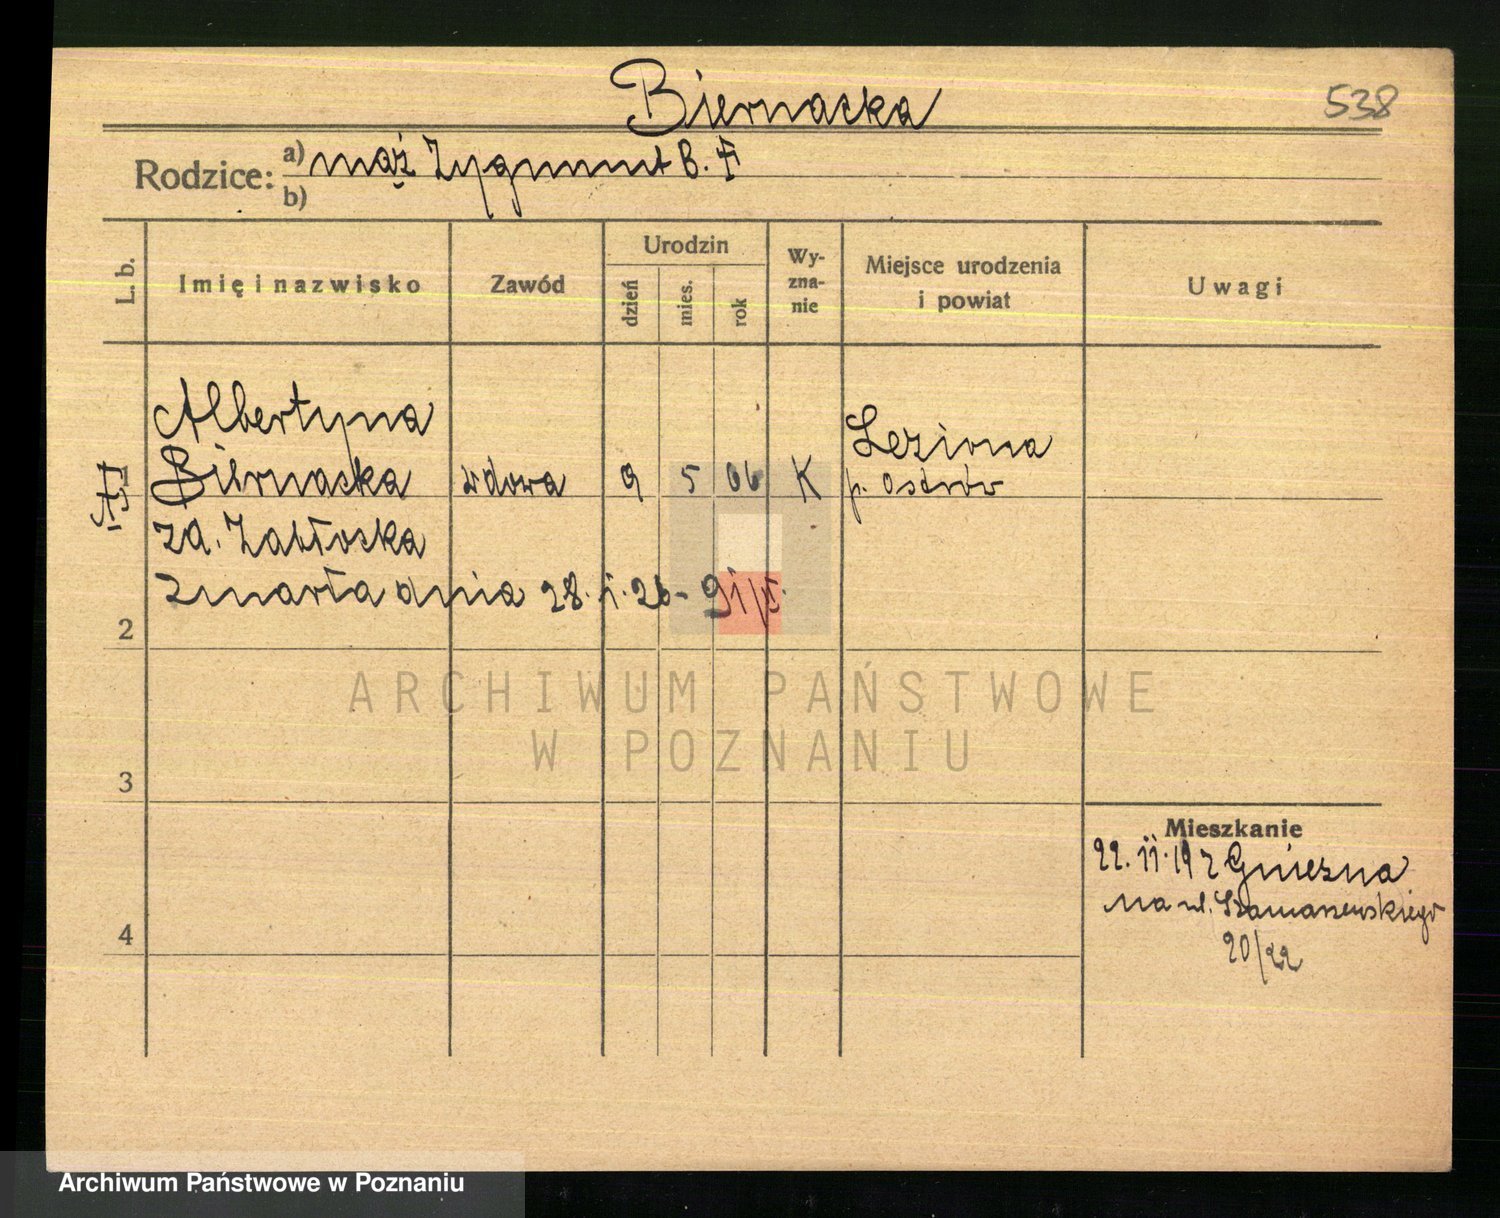 Biernacka
538
Rodzice: a) mąż Zygmunt B. F
b)
L. b.
Imię i nazwisko
Zawód
Urodzin
dzień
mies.
rok
Wy-
zna-
nie
Miejsce urodzenia
i powiat
Uwagi
Albertyna
Biernacka wdowa 9 5 06 K
Leziona
p. Ostrów
zd. Zabłocka
zmarła dnia 28. 26-
2
3
4
ARCHIWUM PAŃSTWOWE
W POZNANIU
Mieszkanie
22. II. 19 z Gniezna
na ul. Szamarzewskiego
20/22
Archiwum Państwowe w Poznaniu